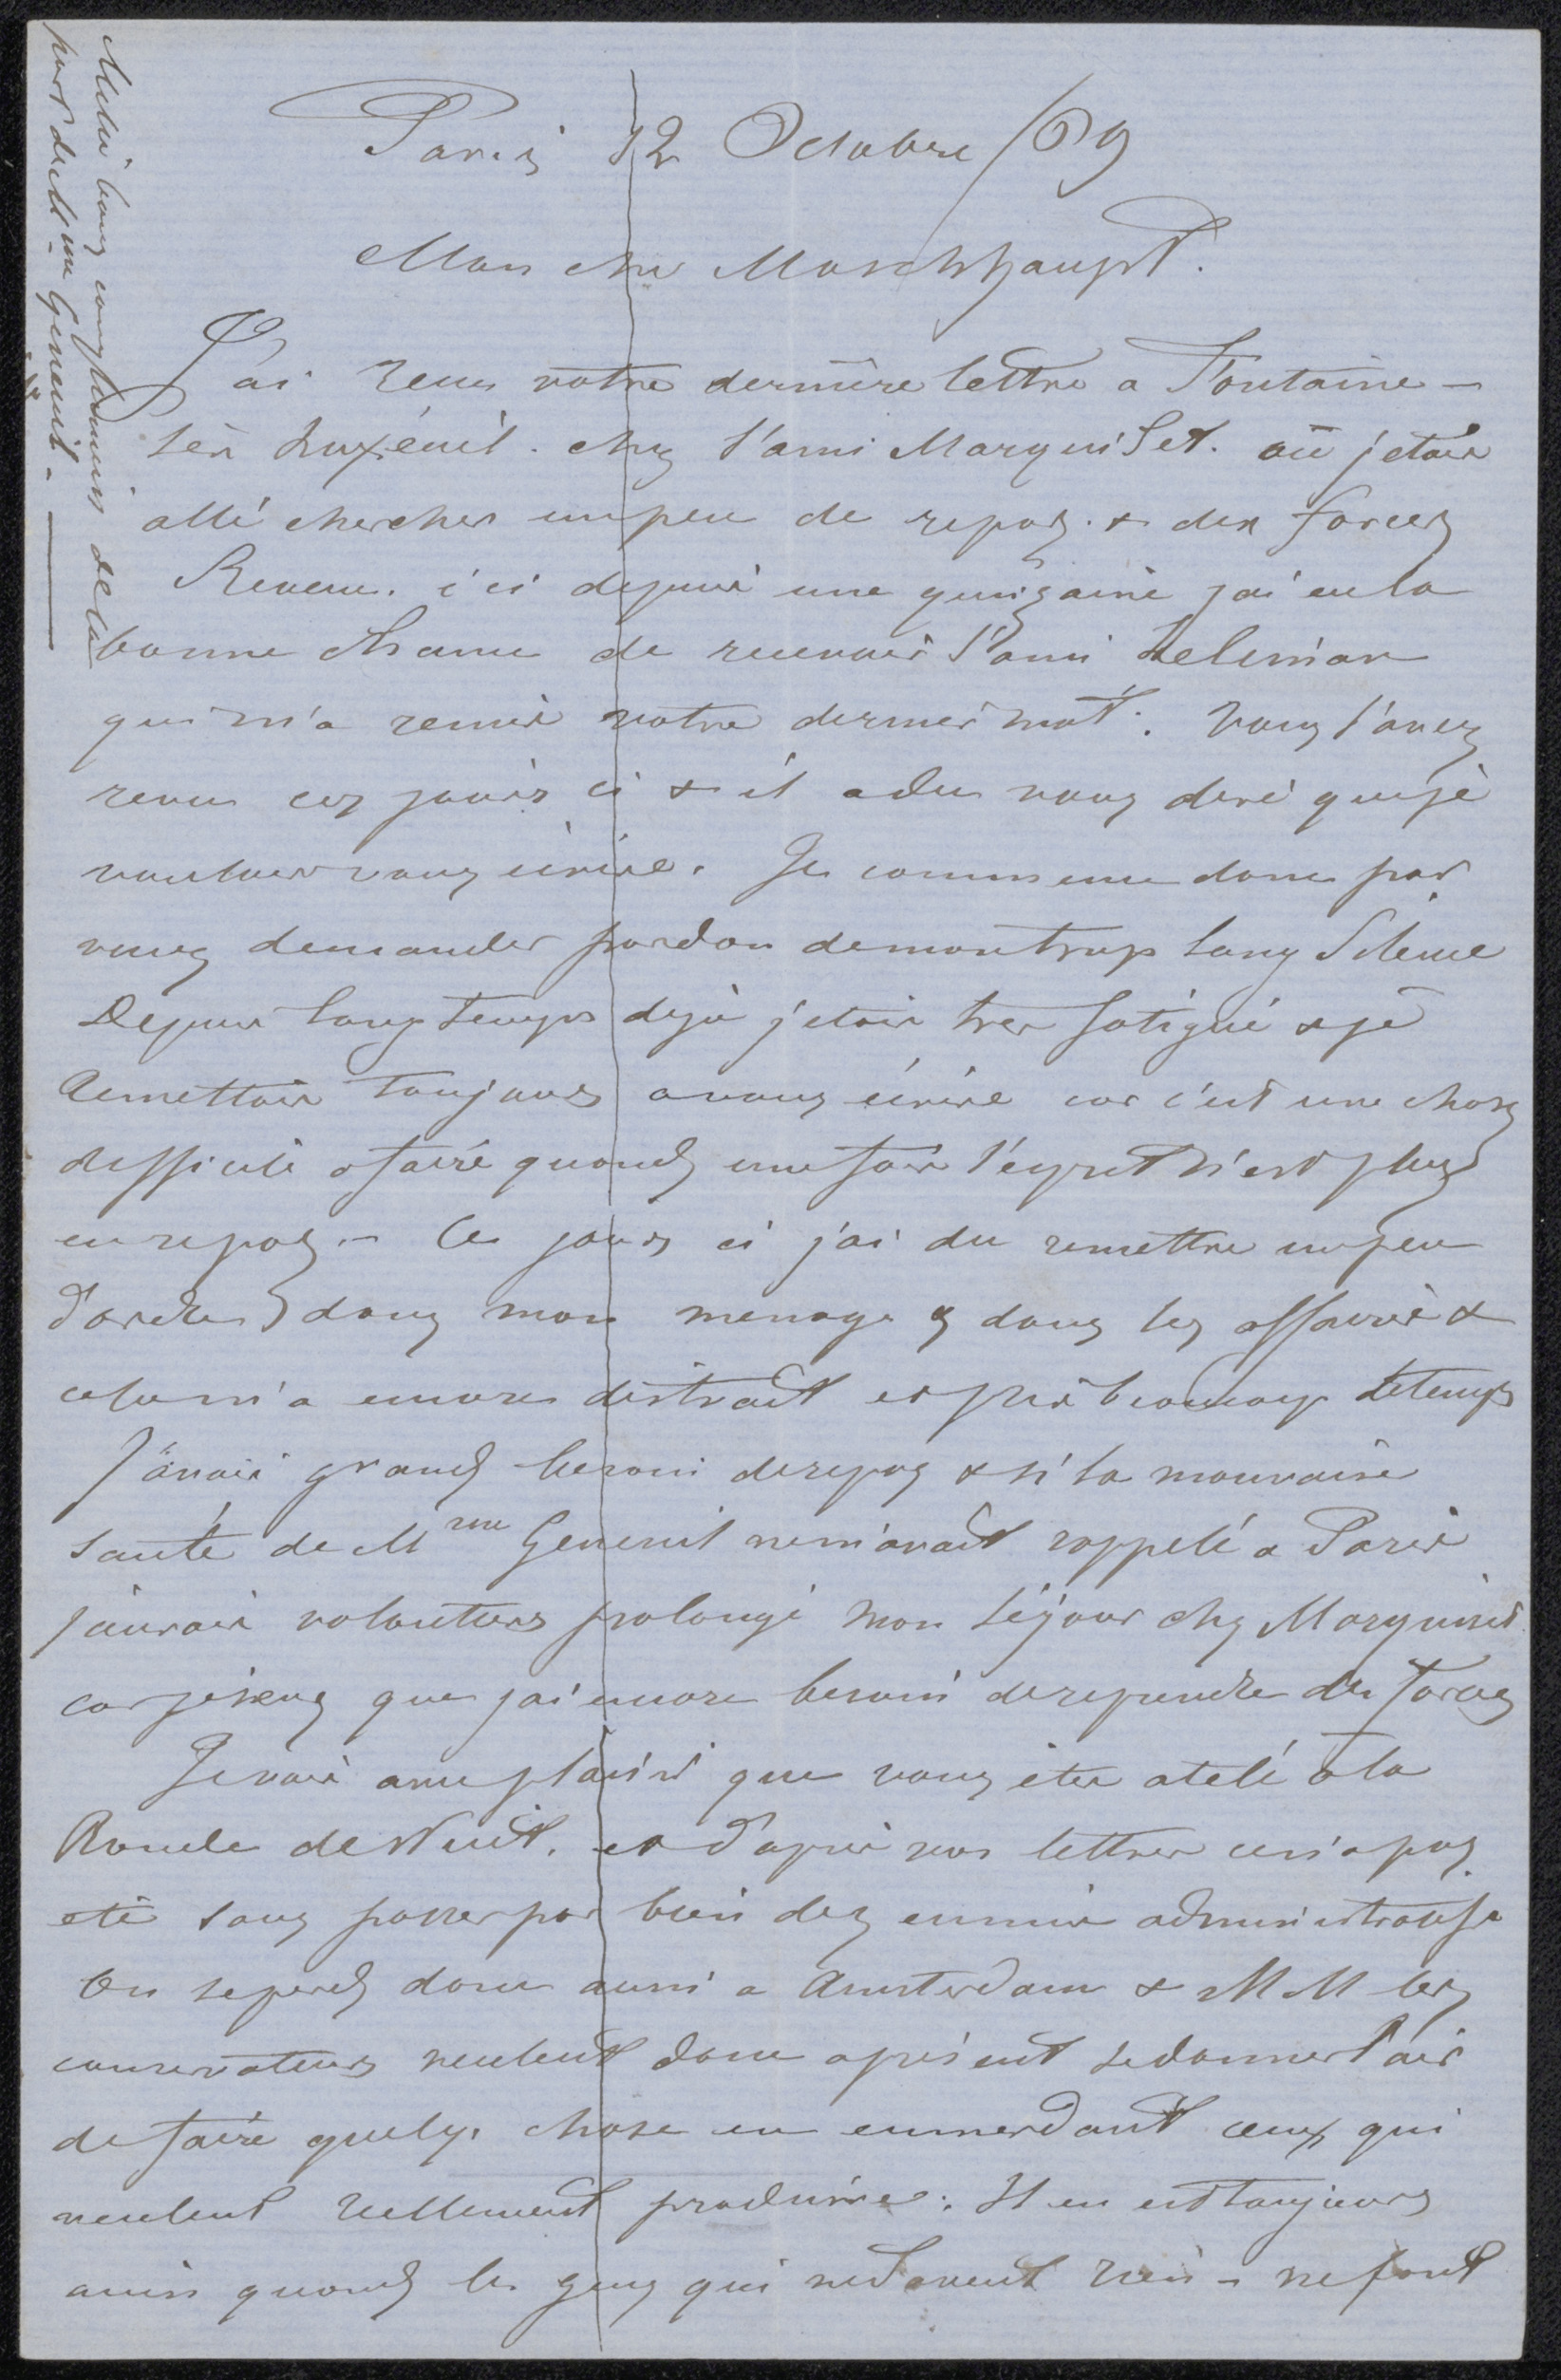 Paris 12 Octobre /69
Mon cher Moschhaupt.
J'ai reçu votre dernière lettre a Fontaine-
les Luxéuil. chez l'ami Marquiset. où j'etais
allé chercher un peu de repos. & des forces
Revenu. ici depuis une quinzaine j'ai eu la
bonne chance de recevoir l'ami
qui m'a remis votre dernier mot. Vous l'avez
revu ces jours ci & il a du vous dire que je
voulais vous écrire. Je commence donc par
vous demander pardon de mon trop long Silence
Depuis long temps deja j'etais tres fatigué & je
Remettais toujours a vous écrire car c'est une chose
difficile a faire quand une fois l'esprit n'est plus
en repos. - Ces jours ci j'ai du remettre un peu
d'ordre dans mon menage & dans les affaires &
cela m'a encore distrait et pris beaucoup de temps
J'avais grand besoin de repos & si la mauvaise
santé de Mme Generil ne m'avait rappelé a Paris
j'aurais volontiers prolongé mon séjour chez Marquiset
car je sens que j'ai encore besoin de reprendre des forces
Je vois avec plaisir que vous etes atelé a la
Ronde de Nuit. et d'après vos lettres ce n'a pas
eté sans passer par bien des ennuis administratifs
On se perd donc aussi a Amsterdam & M M les
conservateurs veulent donc a présent se donner l'air
de faire quelq. chose en emmerdant ceux qui
veulent reellement produire. Il en est toujours
ainsi quand les gens qui ne savent rien - ne font
Mille bons complimens de la
part de Mme Generil. -